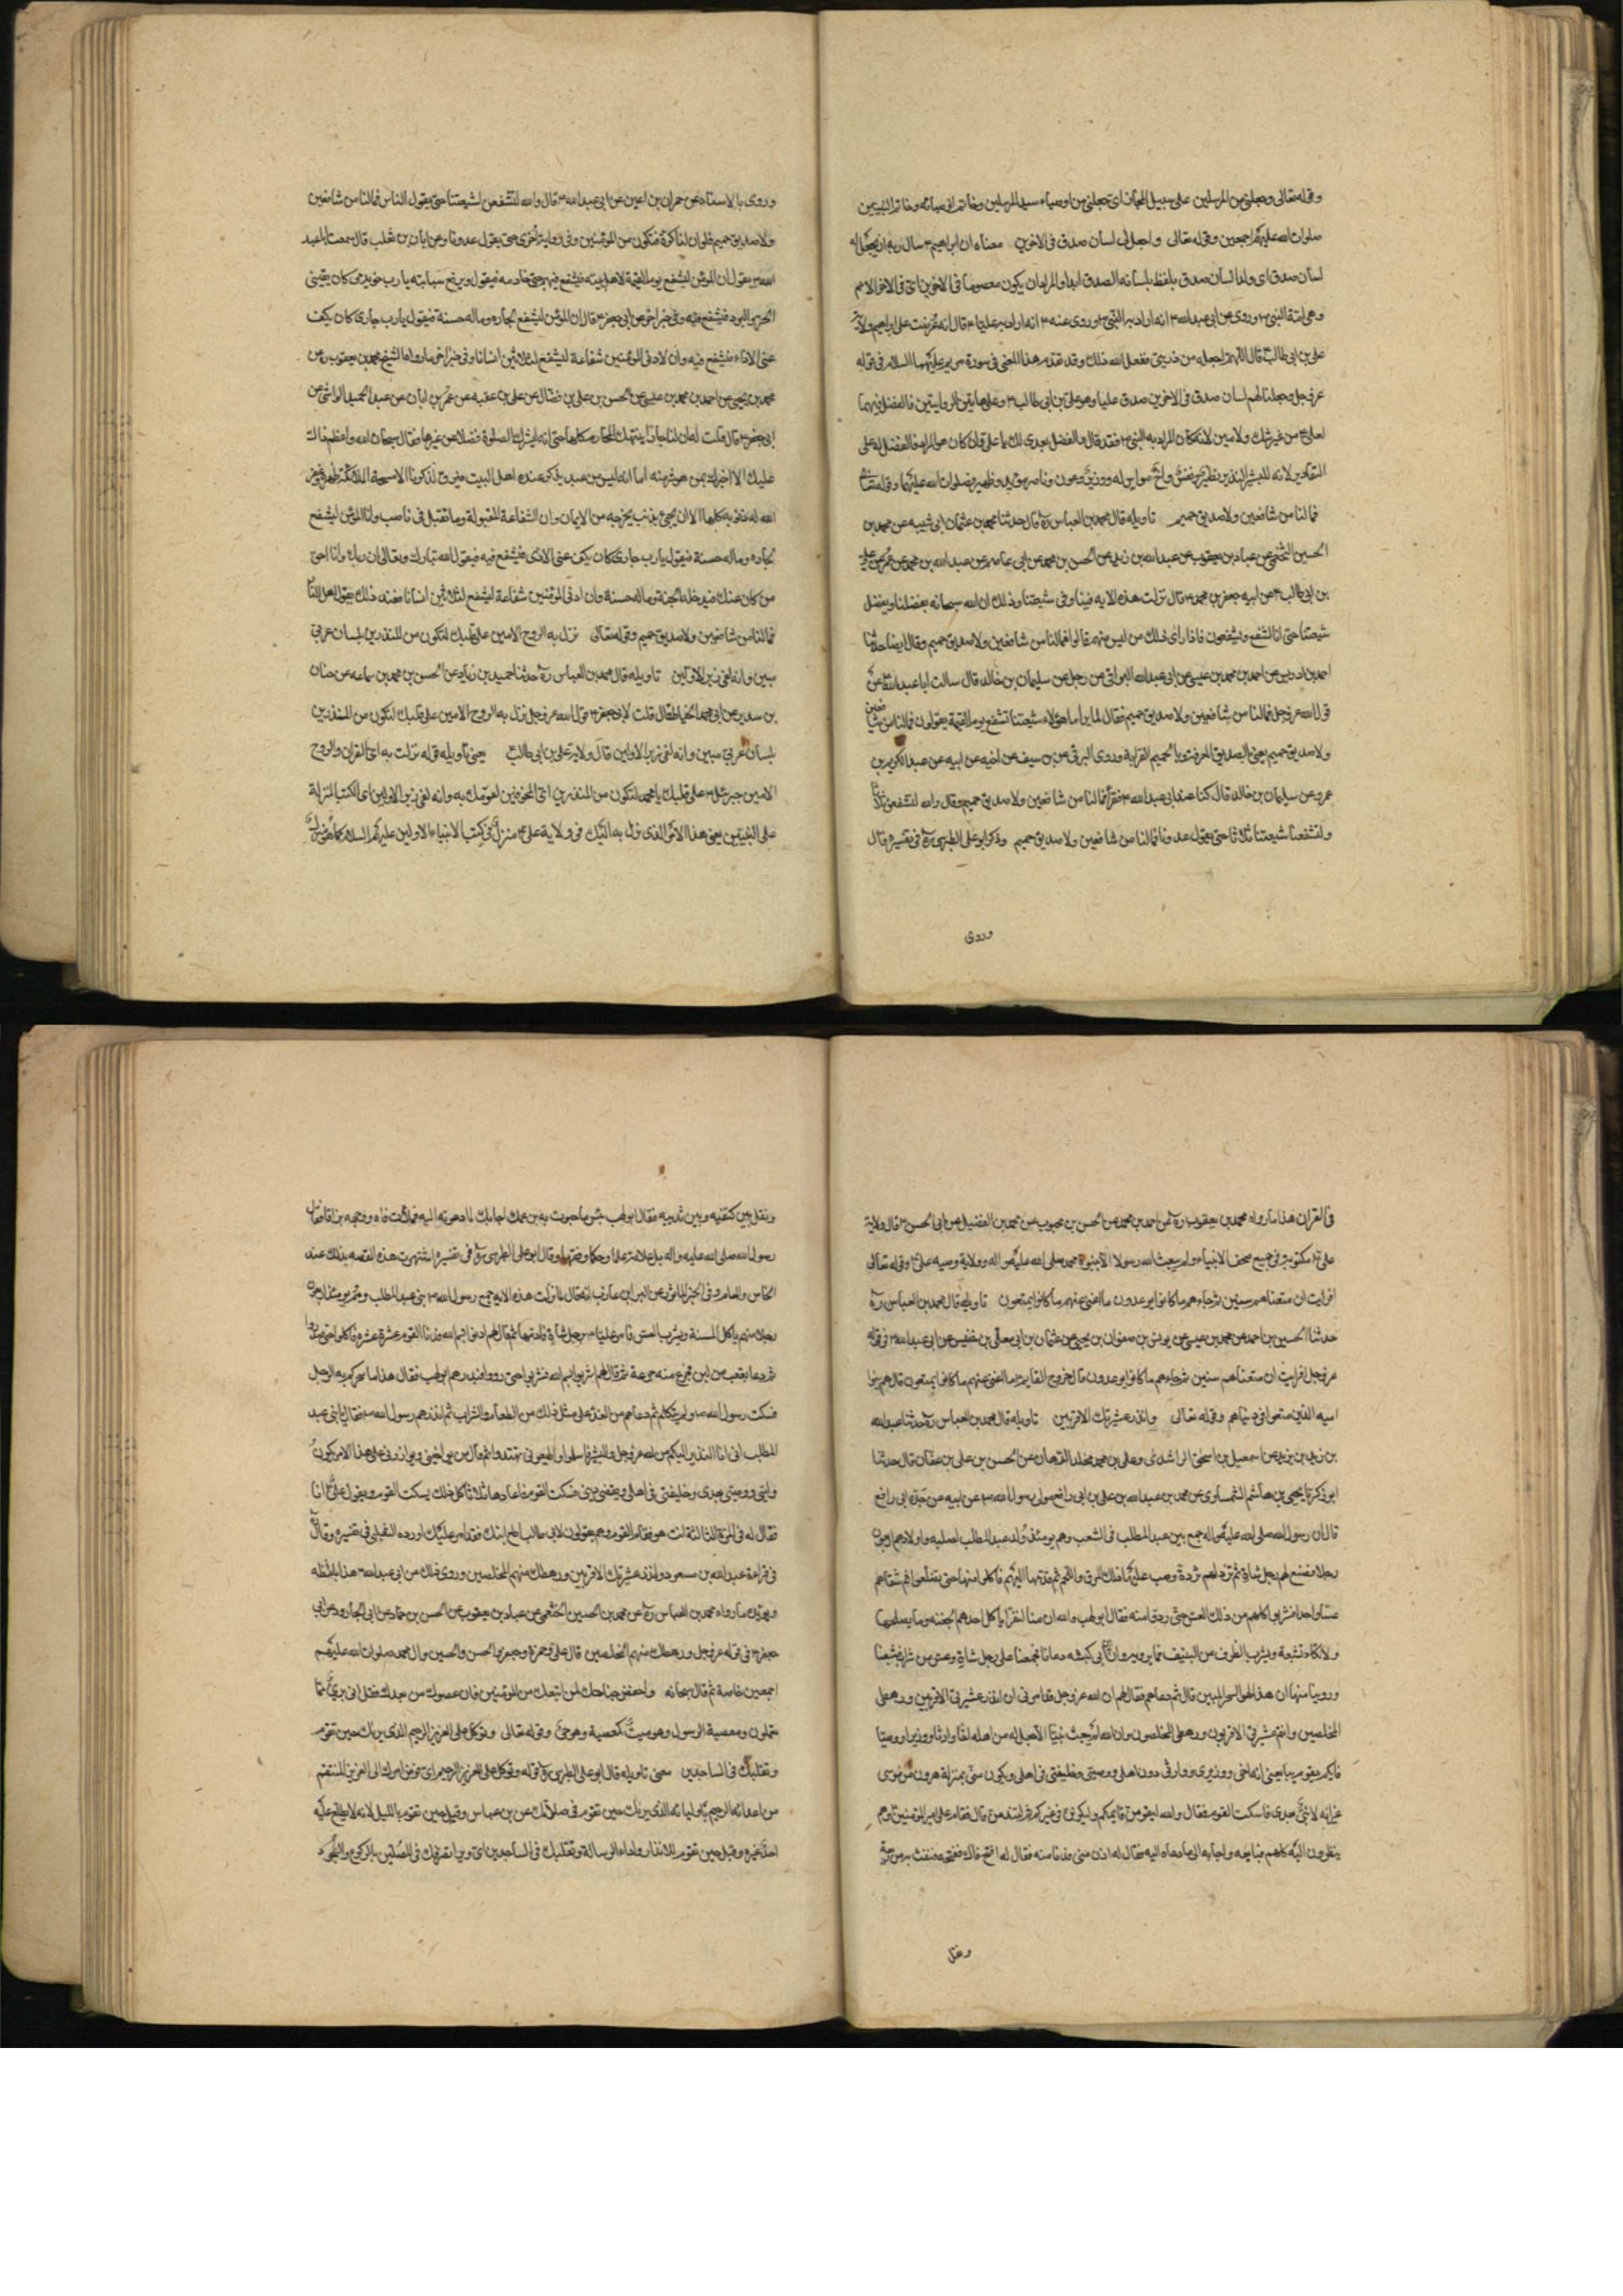 وقوله تعالى وجعلني من المرسلين على سبيل المجاز اي تجعلني من اوصياء سيد المرسلين وخاتم النبيين
صلوات الله عليهم اجمعين وقوله تعالى واجعل لي لسان صدق في الاخرين معناه ان ابراهيم سال ربه ان يجعل له
لسان صدق اي ولدا لسان صدق يلفظ بلسانه الصدق ابدا والمراد ان يكون معصوما في الاخرين اي في الاخر الامم
وهي امة النبي وروي عن ابي عبد الله انه اراد به النبي وروي عنه انه اراد به عليا قال انه عرضت على ابراهيم ولاية
علي بن ابي طالب قال اللهم اجعله من ذريتي ففعل الله ذلك وقد تقدم هذا المعنى في سورة مريم عليهما السلام في قوله
عز وجل وجعلنا لهم لسان صدق في الاخرين صدق عليا وهو علي بن ابي طالب وعلى هاتين الروايتين فالفضل فيهما
لعلي من غير شك ولا مين لانه كان المراد به النبي فقد قال والفضل بعدي لك يا علي وان كان هو المراد فالفضل له على
التقادير لانه للبشير النذير نظير ونفس واخ مواس له ووزير وعون وناصر ومؤيد وظهير صلوات الله عليهما وقوله تعالى
فما لنا من شافعين ولا صديق حميم تاويله قال محمد بن العباس ره قال حدثنا محمد بن عثمان ابي شيبه عن محمد بن
الحسين الخثعمي عن عباد بن يعقوب عن عبد الله بن زيد عن الحسن بن محمد عن ابي عاصم عن عبد الله بن محمد عن عمر عن علي
بن ابي طالب عن ابيه جعفر بن محمد قال نزلت هذه الايه فينا وفي شيعتنا وذلك ان الله سبحانه يفضلنا ويفضل
شيعتنا حتى انا لنشفع ويشفعون فاذا راى ذلك من ليس منهم قالوا فما لنا من شافعين ولا صديق حميم وقال ايضا حدثنا
احمد بن ادريس عن احمد بن محمد بن عيسى عن ابي عبد الله البرقي عن رجل عن سليمان بن خالد قال سالت ابا عبد الله عن
قول الله عز وجل فما لنا من شافعين ولا صديق حميم فقال لما يرانا هؤلاء شيعتنا نشفع يوم القيمة يقولون فما لنا من شافعين
ولا صديق حميم يعني بالصديق المعرفة وبالحميم القرابة وروى البرقي عن بن سيف عن اخيه عن ابيه عن عبد الكريم بن
عمرو عن سليمان بن خالد قال كنا عند ابي عبد الله فقرأ فما لنا من شافعين ولا صديق حميم وقال والله لنشفعن ثلاثا
ولتشفعن شيعتنا ثلاثا حتى يقول عدونا فما لنا من شافعين ولا صديق حميم وذكر ابو علي الطبرسي ره في تفسيره قال
وروى
وروى بالاسناد عن حمران بن اعين عن ابي عبد الله قال والله لنشفعن لشيعتنا حتى يقول الناس فما لنا من شافعين
ولا صديق حميم فلو ان لنا كرة فنكون من المؤمنين وفي رواية اخرى حتى يقول عدونا وعن ابان بن تغلب قال سمعت ابا عبد
الله يقول ان المؤمن ليشفع يوم القيمة لاهل بيته فيشفع فيهم حتى خادمه فيقول ويرفع سبابته يا رب خويدمي كان يقيني
الحر والبرد فيشفع فيه وفي خبر اخر عن ابي جعفر قال ان المؤمن ليشفع لجاره وماله حسنة فيقول يا رب جاري كان يكف
عني الاذى فيشفع فيه وان ادنى المؤمنين شفاعة ليشفع لثلاثين انسانا وفي خبر اخر ما رواه الشيخ محمد بن يعقوب ره عن
محمد بن يحيى عن احمد بن محمد بن عيسى عن الحسن بن علي بن فضال عن علي بن عقبه عن عمر بن ابان عن عبد الحميد الوابشي عن
ابي جعفر قال قلت له ان لنا جارا ينتهك المحارم كلها حتى انه ليترك الصلوة فضلا عن غيرها فقال سبحان الله واعظم ذلك
عليك الا اخبرك بمن هو شر منه اما انه ليس من عبد يذكر عنده اهل البيت فيرق لذكرنا الا مسحت الملائكة ظهره وغفر
الله له ذنوبه كلها الا ان يجئ بذنب يخرجه من الايمان وان الشفاعة لمقبولة وما تقبل في ناصب وان المؤمن ليشفع
لجاره وماله حسنة فيقول يا رب جاري كان يكف عني الاذى فيشفع فيه فيقول الله تبارك وتعالى انا ربك وانا احق
من كافى عنك فيدخله الجنة وماله حسنة وان ادنى المؤمنين شفاعة ليشفع لثلاثين انسانا فعند ذلك يقول اهل النار
فما لنا من شافعين ولا صديق حميم وقوله تعالى نزل به الروح الامين على قلبك لتكون من المنذرين بلسان عربي
مبين وانه لفي زبر الاولين تاويله قال محمد بن العباس ره حدثنا حميد بن زياد عن الحسن بن محمد بن سماعه عن حنان
بن سدير عن ابي محمد الحناط قال قلت لابي جعفر قول الله عز وجل نزل به الروح الامين على قلبك لتكون من المنذرين
بلسان عربي مبين وانه لفي زبر الاولين قال ولاية علي بن ابي طالب معنى تاويله قوله نزلت به اي القران والروح
الامين جبرئيل على قلبك يا محمد لتكون من المنذرين اي المخوفين لقومك به وانه لفي زبر الاولين اي الكتب المنزلة
على النبيين يعني هذا الامر الذي نزل به اليك في ولاية علي منزل في كتب الانبياء الاولين عليهم السلام كما
في القران هذا ما رواه محمد بن يعقوب ره عن احمد بن محمد عن الحسن بن محبوب عن محمد بن الفضيل عن ابي الحسن قال ولاية
علي مكتوبة في جميع صحف الانبياء ولم يبعث الله رسولا الا بنبوة محمد صلى الله عليه واله وولاية وصيه علي وقوله تعالى
افرايت ان متعناهم سنين ثم جاءهم ما كانوا يوعدون ما اغنى عنهم ما كانوا يمتعون تاويله قال محمد بن العباس ره
حدثنا الحسين بن احمد عن محمد بن عيسى عن يونس بن صفوان بن يحيى عن عثمان بن ابي معلى بن خنيس عن ابي عبد الله في قوله
عز وجل افرايت ان متعناهم سنين ثم جاءهم ما كانوا يوعدون قال خروج القايم ما اغنى عنهم ما كانوا يمتعون قال هم بنوا
اميه الذين متعوا في دنياهم وقوله تعالى وانذر عشيرتك الاقربين تاويله قال محمد بن العباس ره حدثنا عبد الله
بن زيدان بن يزيد عن اسمعيل بن اسحق الراشدي وعلي بن محمد مخلد الدهان عن الحسن بن علي بن عفان قال حدثنا
ابو زكريا يحيى بن هاشم السمساري عن محمد بن عبد الله بن علي بن ابي رافع مولى رسول الله عن ابيه عن جده ابي رافع
قال ان رسول الله صلى الله عليه واله جمع بني عبد المطلب في الشعب وهم يومئذ ولد عبد المطلب لصلبه واولادهم اربعون
رجلا فصنع لهم رجل شاة ثم ثرد لهم ثردة وصب عليها ذلك المرق واللحم ثم قدمها اليهم فاكلوا منها حتى تضلعوا ثم سقاهم
عسا واحدا فشربوا كلهم من ذلك العس حتى رووا منه فقال ابو لهب والله ان منا لنفرا ياكل احدهم الجفنه وما يصلحها
ولا تكاد تشبعه ويشرب الظرف من النبيذ فما يرويه وان ابن ابي كبشه دعانا فجمعنا على رجل شاة وعس من شراب فشبعنا
وروينا منها ان هذا لهو السحر المبين قال ثم دعاهم فقال لهم ان الله عز وجل قد امرني ان انذر عشيرتي الاقربين ورهطي
المخلصين وانتم عشيرتي الاقربون ورهطي المخلصون وان الله لم يبعث نبيا الا جعل له من اهله اخا ووارثا ووزيرا ووصيا
فايكم يقوم يبايعني انه اخي ووزيري ووارثي دون اهلي ووصيي وخليفتي في اهلي ويكون مني بمنزلة هرون من موسى
غير انه لا نبي بعدي فاسكت القوم فقال والله ليقومن قايمكم او ليكونن في غيركم ثم لتندمن قال فقام علي امير المؤمنين وهم
ينظرون اليه كلهم فبايعه واجابه الى ما دعاه اليه فقال له ادن مني فدنا منه فقال له افتح فاك ففتحه فنفث فيه من ريقه
وتفل
وتفل بين كتفيه وبين ثدييه فقال ابو لهب بئس ما حبوت به بن عمك اجابك لما دعوته اليه فملأت فاه ووجهه بزاقا فقال
رسول الله صلى الله عليه واله بل ملأته علما وحكما وفقها وقال ابو علي الطبرسي ره في تفسيره اشتهرت هذه القصه بذلك عند
الخاص والعام وفي الخبر الماثور عن البراء بن عازب انه قال لما نزلت هذه الايه جمع رسول الله بني عبد المطلب وهم يومئذ اربعون
رجلا منهم ياكل المسنة ويشرب العس فامر عليا برجل شاة فادمها ثم قال لهم ادنوا بسم الله فدنا القوم عشرة عشرة فاكلوا حتى صدروا
ثم دعا بقعب من لبن فجرع منه جرعة ثم قال لهم اشربوا بسم الله فشربوا حتى رووا فبدرهم ابو لهب فقال هذا ما سحركم به الرجل
فسكت رسول الله ولم يتكلم ثم دعاهم من الغد على مثل ذلك من الطعام والشراب ثم انذرهم رسول الله فقال يا بني عبد
المطلب اني انا النذير اليكم من الله عز وجل والبشير فاسلموا واطيعوني تهتدوا ثم قال من يواخيني ويوازرني على هذا الامر يكون
وليي ووصيي بعدي وخليفتي في اهلي ويقضي ديني فسكت القوم فاعادها ثلاثا كل ذلك يسكت القوم ويقول علي انا
فقال له في المرة الثالثة انت هو فقام القوم وهم يقولون لابي طالب اطع ابنك فقد امر عليك اورده الثعلبي في تفسيره وقال
في قراءة عبد الله بن مسعود وانذر عشيرتك الاقربين ورهطك منهم المخلصين وروي ذلك عن ابي عبد الله هذا بلفظه
ويؤيده ما رواه محمد بن العباس ره عن محمد بن الحسين الخثعمي عن عباد بن يعقوب عن الحسن بن حماد عن ابي الجارود عن ابي
جعفر في قوله عز وجل ورهطك منهم المخلصين قال علي وحمزة وجعفر والحسن والحسين وال محمد صلوات الله عليهم
اجمعين خاصة ثم قال سبحانه واخفض جناحك لمن اتبعك من المؤمنين فان عصوك من بعدك فقل اني بريء مما
تعملون ومعصية الرسول وهو ميت كمعصيه وهو حي وقوله تعالى وتوكل على العزيز الرحيم الذي يريك حين تقوم
وتقلبك في الساجدين معنى تاويله قال ابو علي الطبرسي ره قوله وتوكل على العزيز الرحيم اي فوض امرك الى العزيز المنتقم
من اعدائه الرحيم باوليائه الذي يريك حين تقوم في صلاتك عن بن عباس وقيل حين تقوم بالليل لانه لا يطلع عليه
احد غيره وقيل حين تقوم للانذار واداء الرسالة وتقلبك في الساجدين اي ويرى تصرفك في المصلين بالركوع والسجود